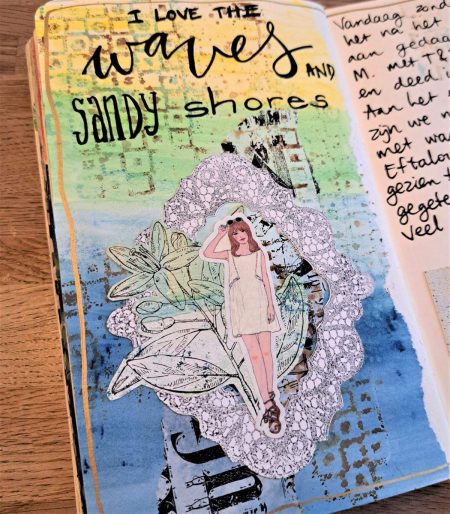 I LOVE THE
waves AND
SANDY shores
Vandaag zond
het na het
aan gedaa
M. met T&
en deed
Aan het
zijn we
met wa
Eftalo
gezien
gegete
veel